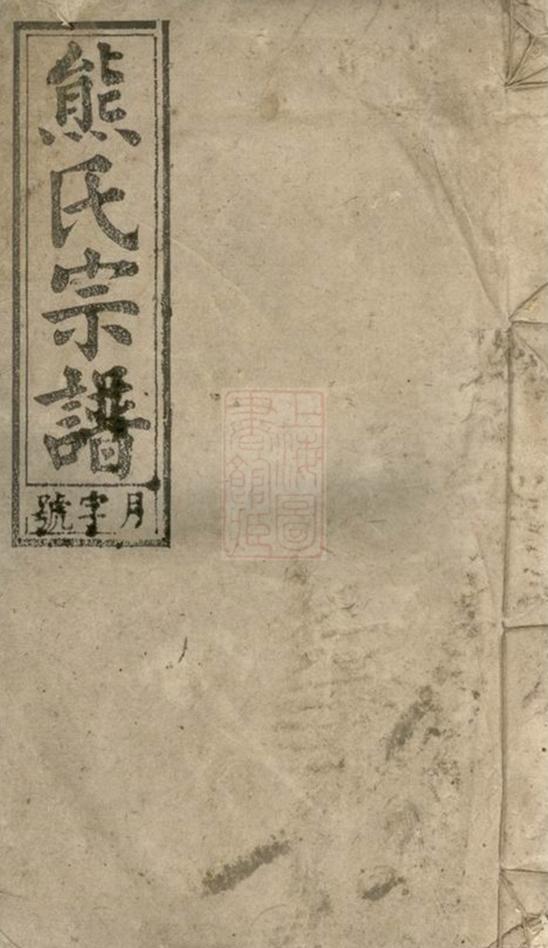 熊氏宗譜
月字號
上海圖
書館藏